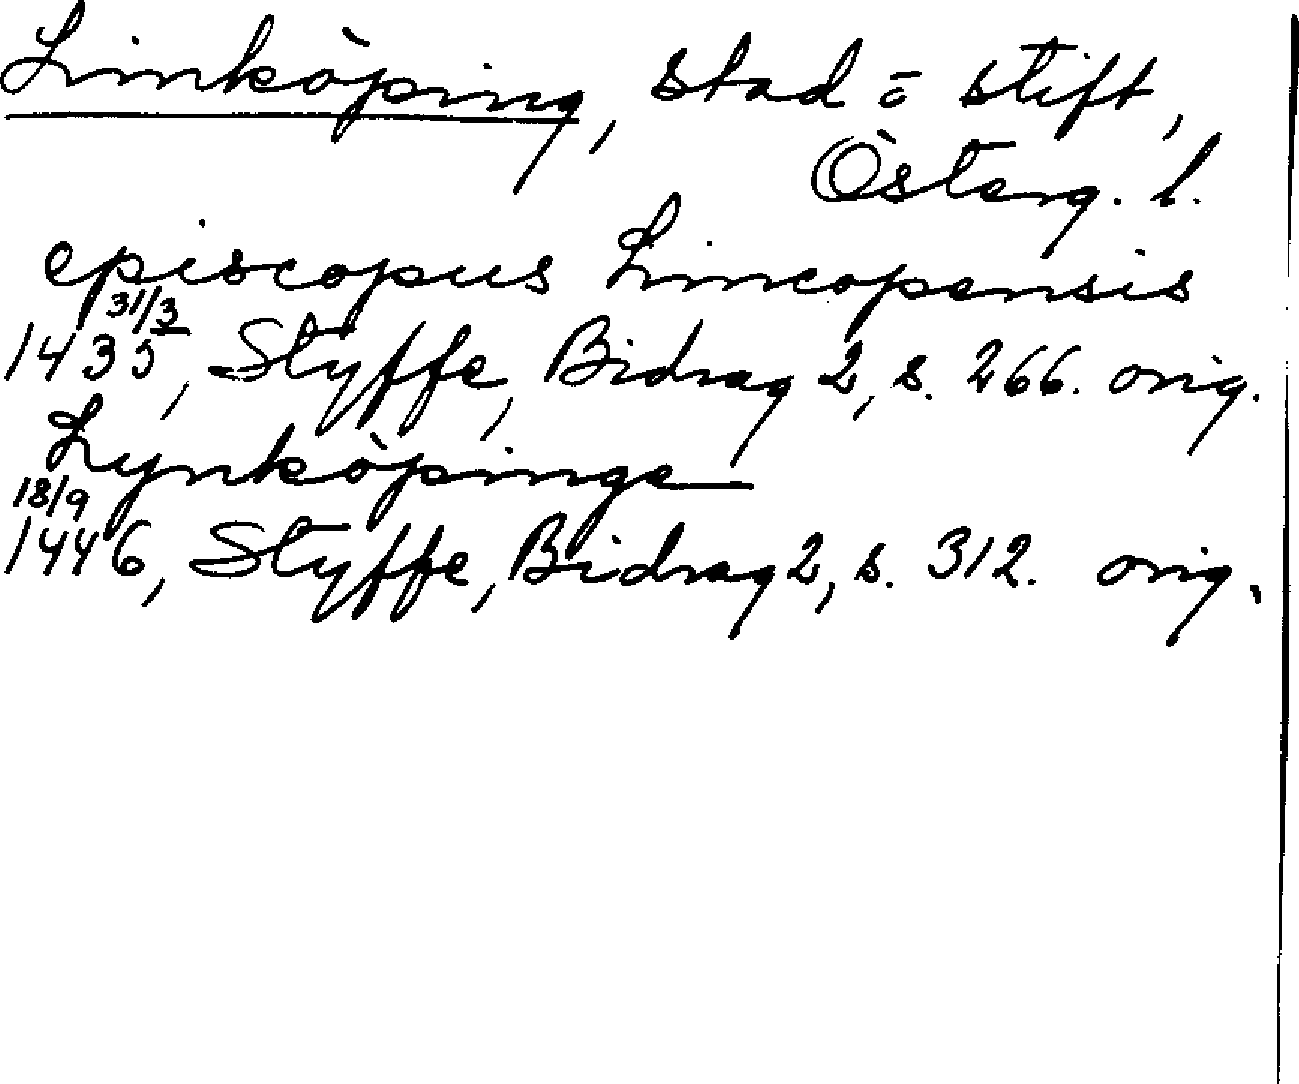 Linköping, stad ō stift,
Österg. l.
episcopus Lincopensis
31/3
1435, Styffe, Bidrag 2, s. 266. orig.
Lynköpinge
18/9
1446, Styffe, Bidrag 2, s. 312. orig.